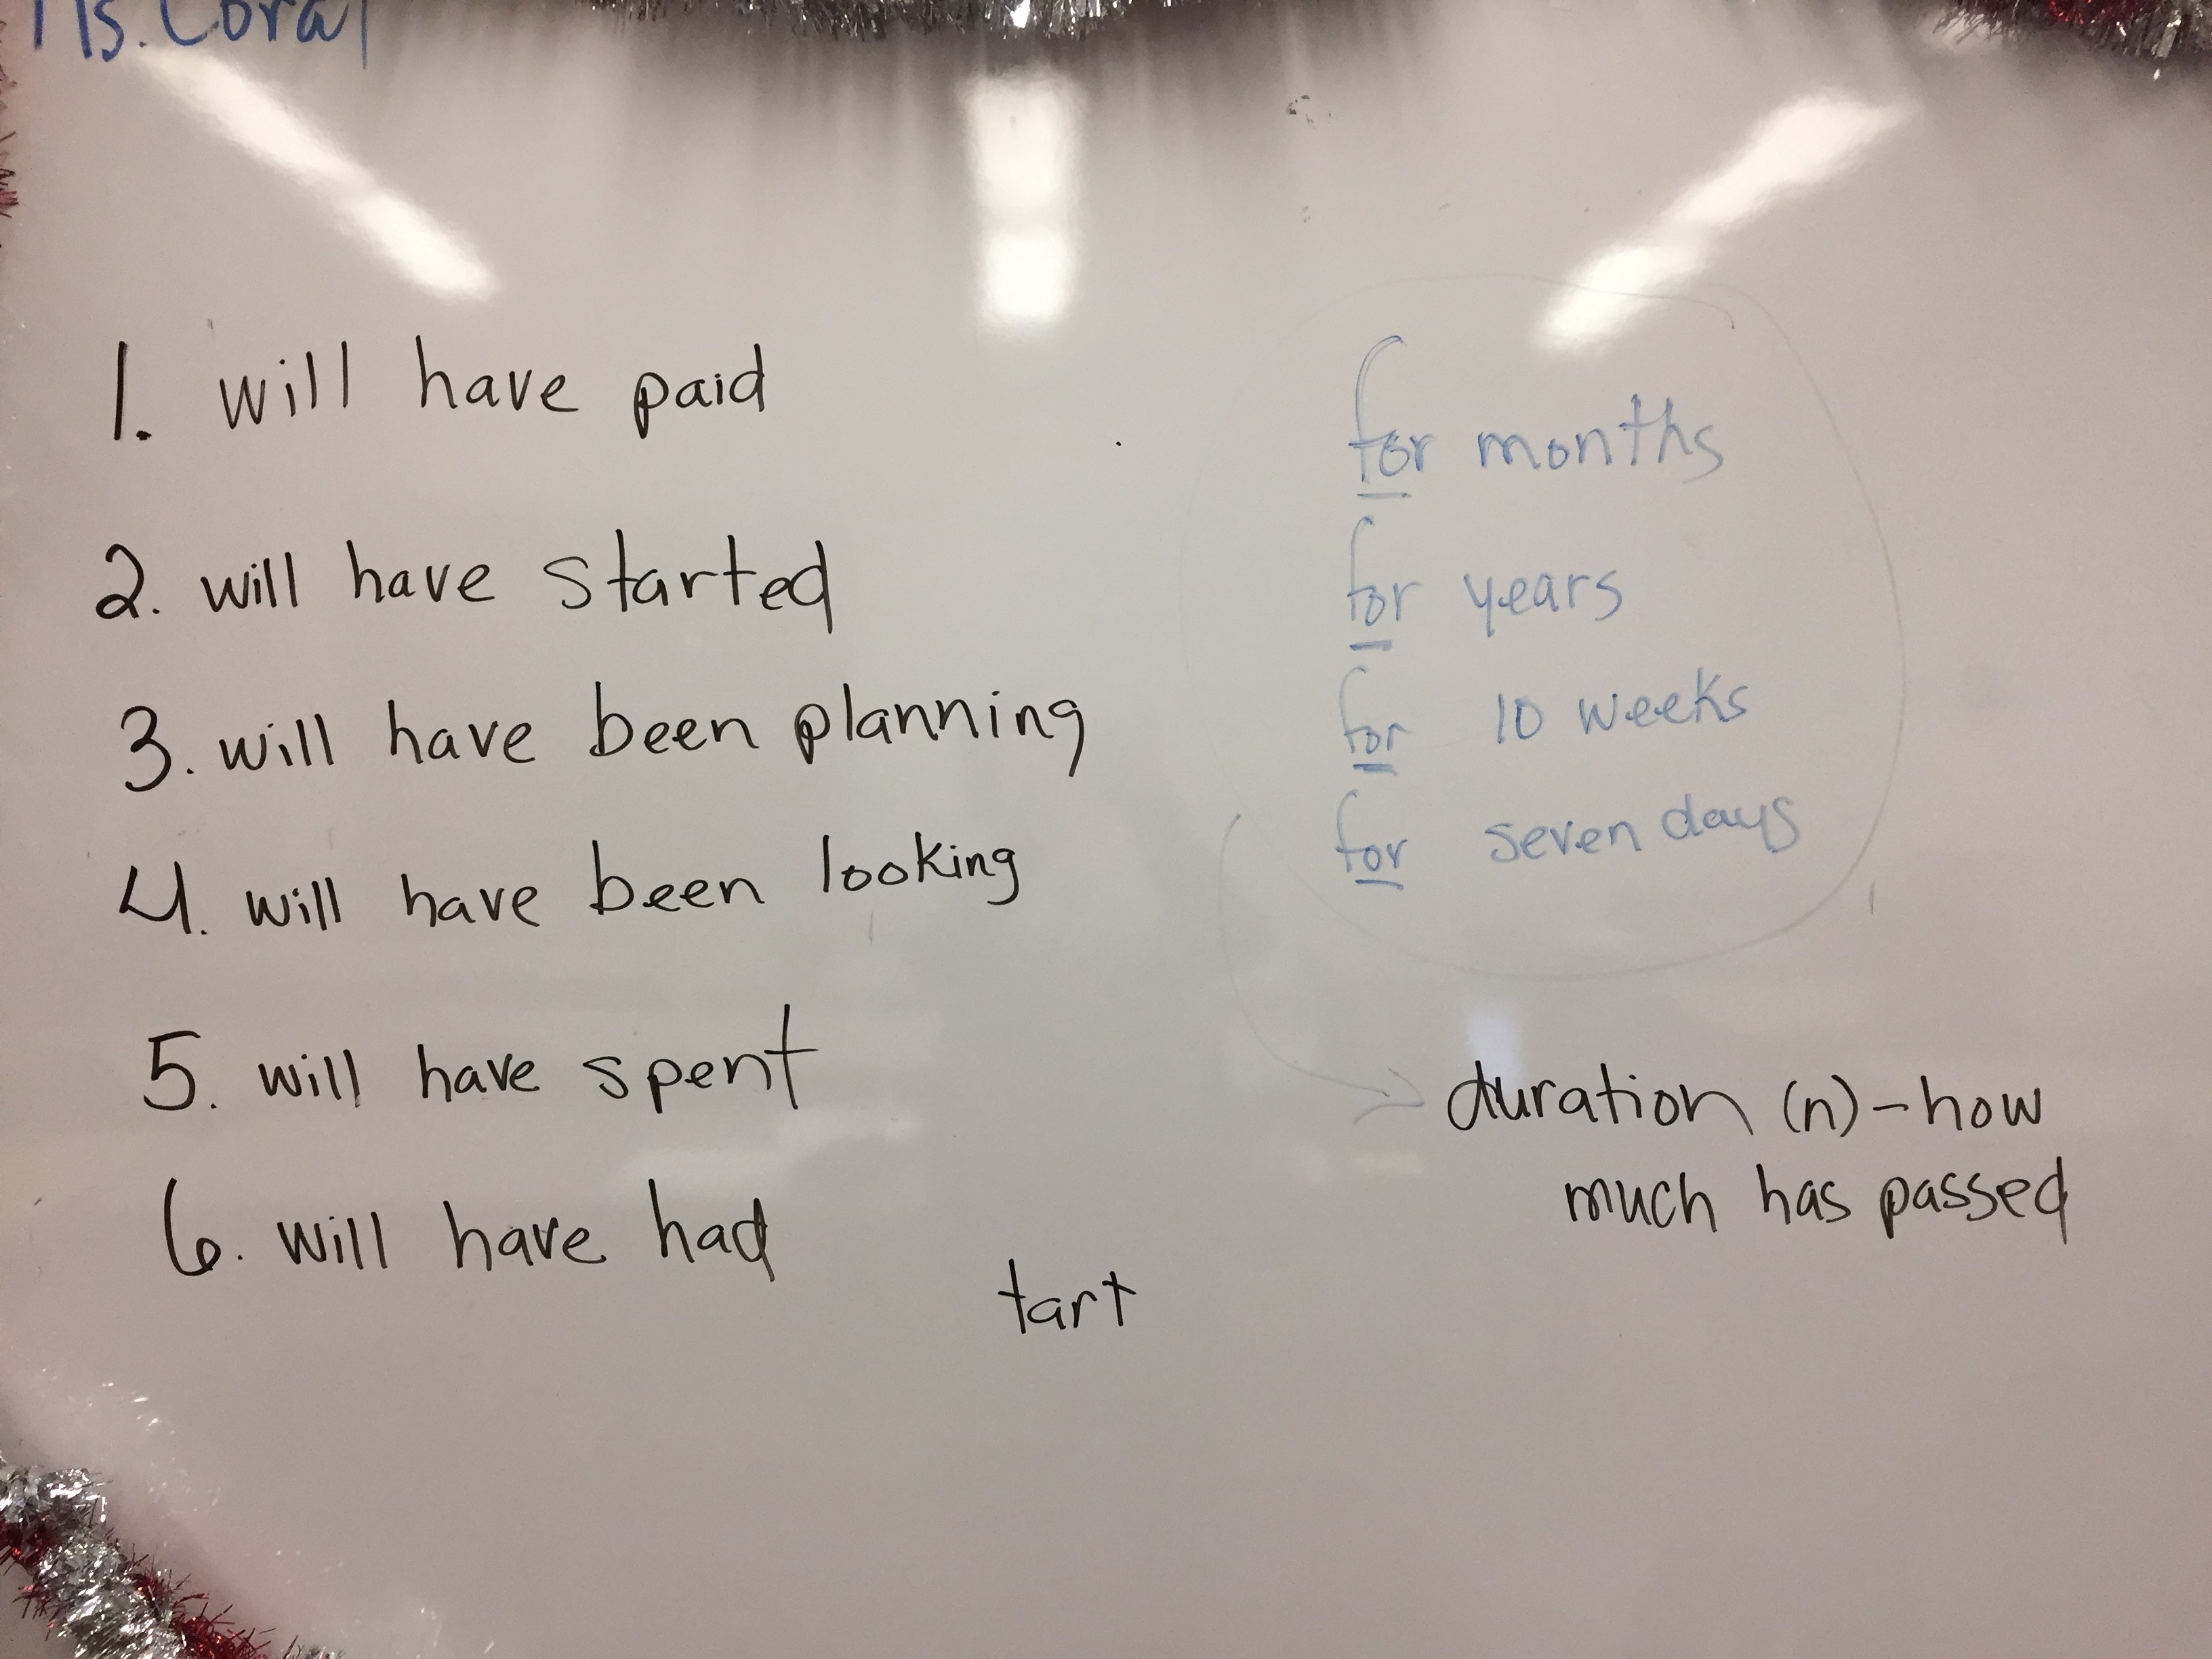 Ms. Coral
1. will have paid
2. will have started
3. will have been planning
4. will have been looking
5. will have spent
6. will have had
tart
for months
for years
for 10 weeks
for seven days
duration (n) – how
much has passed